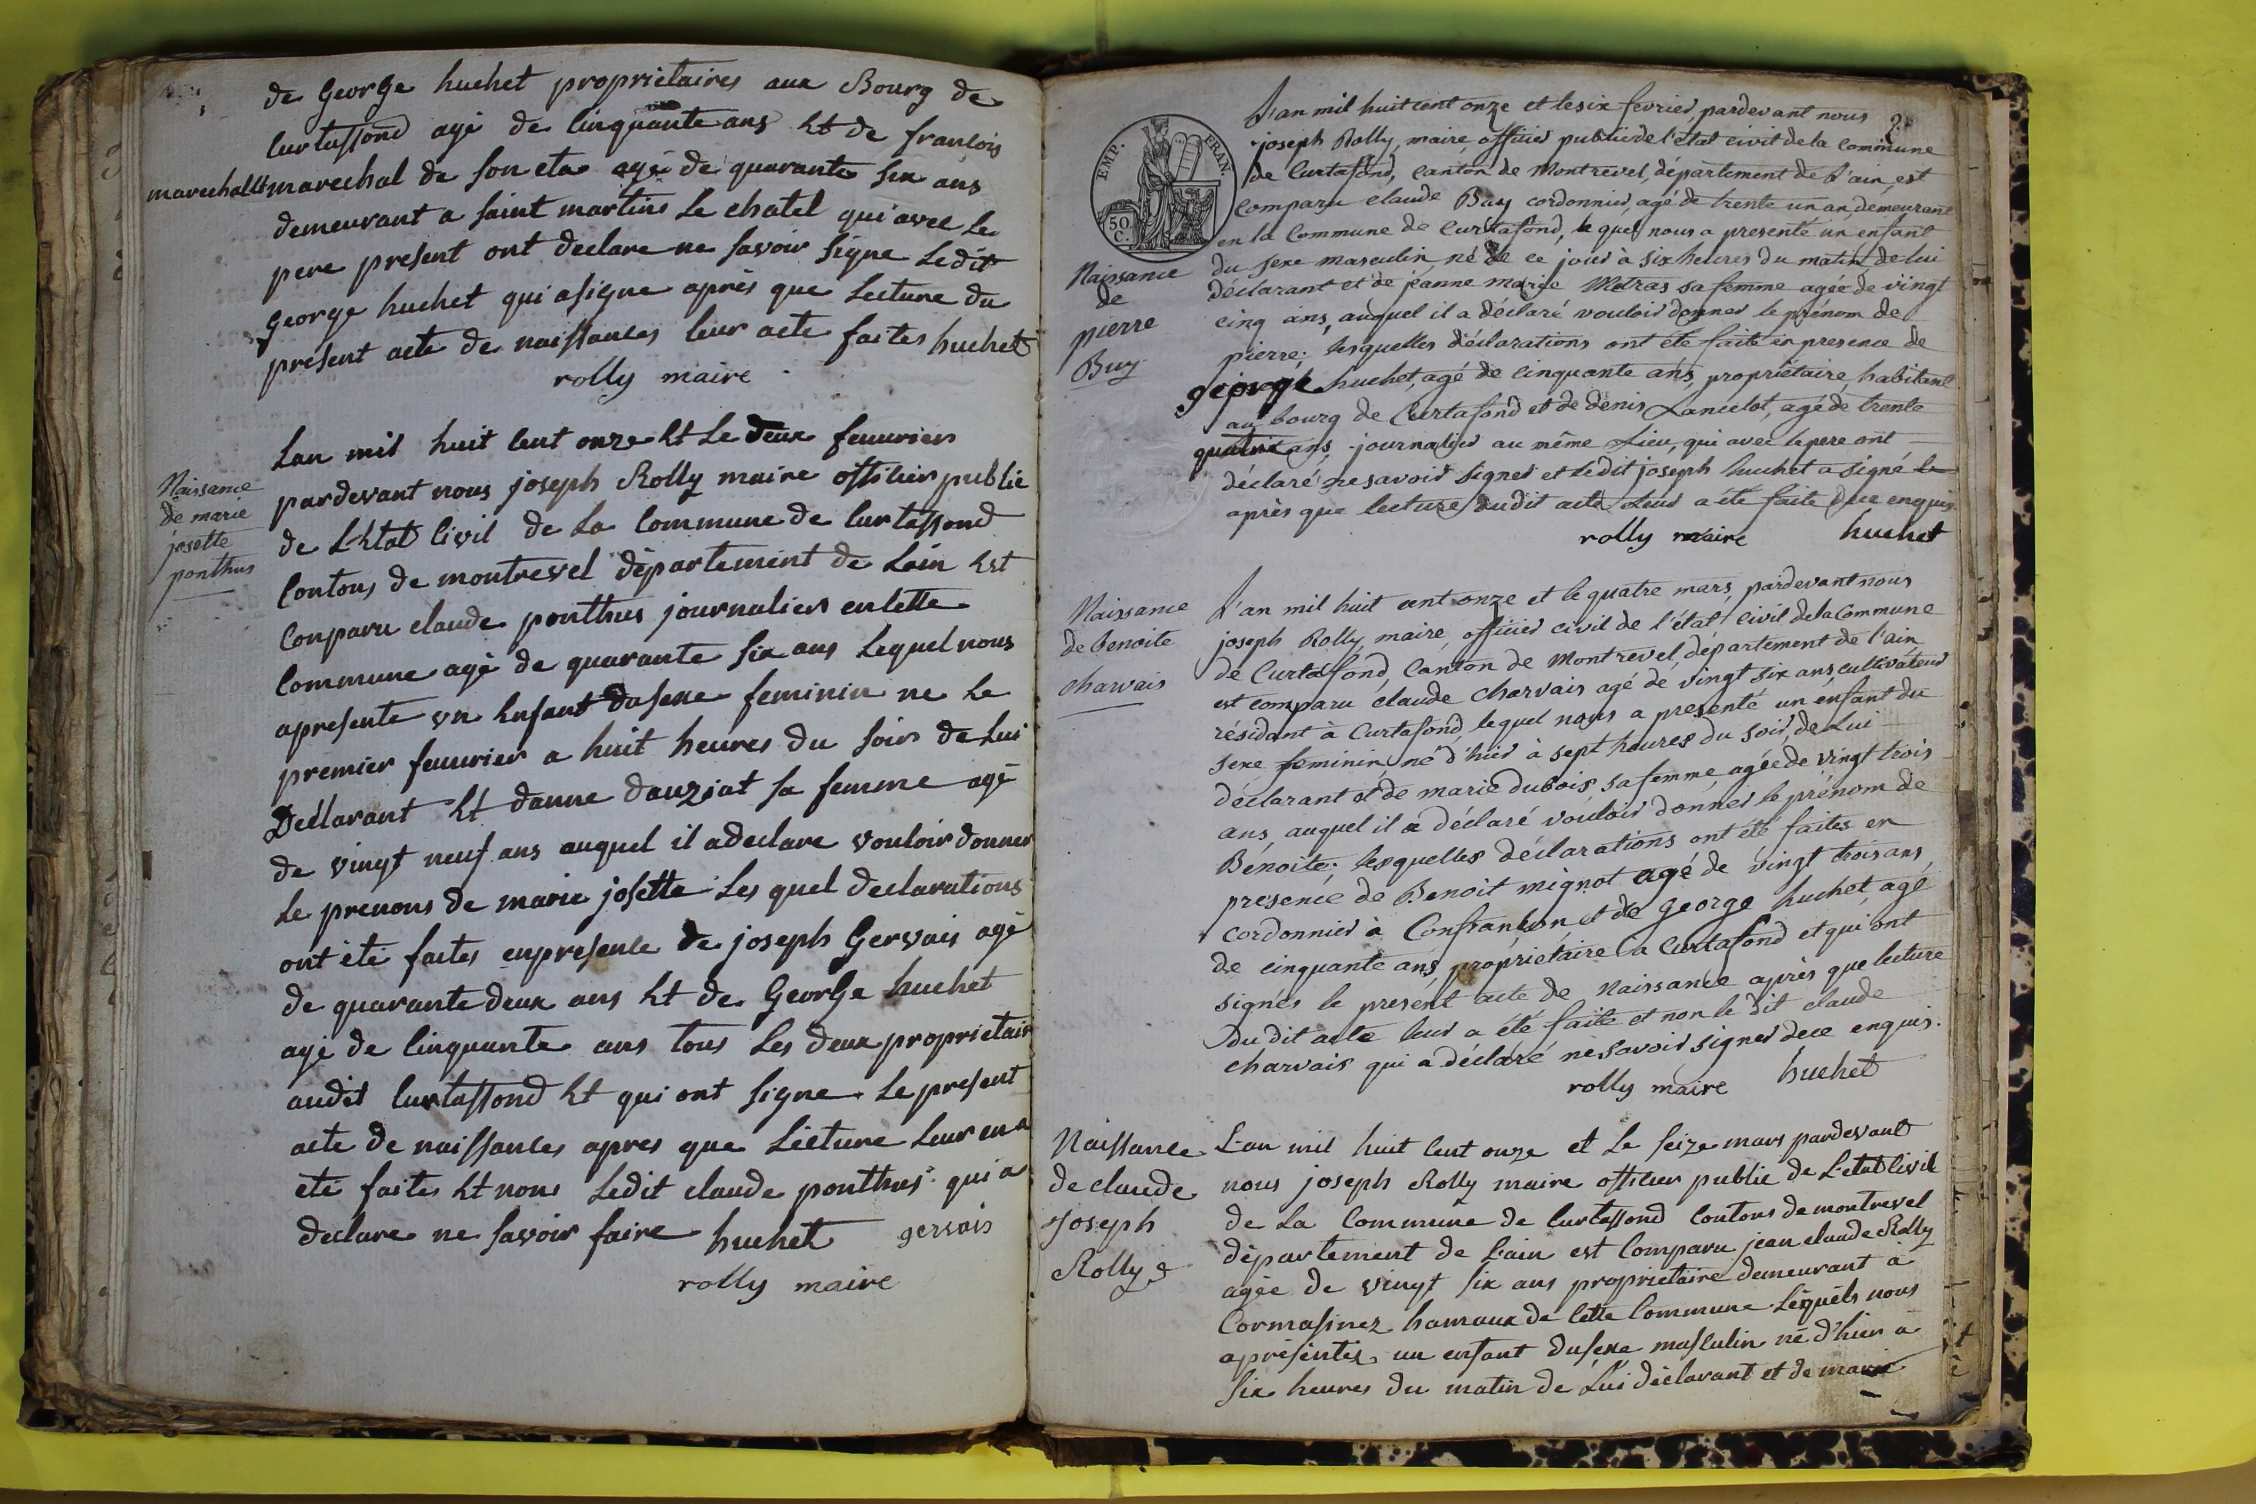 de George huchet proprietaires aux Bourg de
Curtassond agé de Cinquante ans Et de françois
marechall marechal de son eta agé de quarante six ans
demeurant a saint martins Le chatel qui avec Le
pere present ont declare ne savoir signe Ledit
George huchet qui asigne après que Lecture du
present acte de naissances leur acte faites huchet
rolly maire
Naissance
de marie
josette
ponthus
Lan mil huit Cent onze Et Le deux feuvriers
pardevant nous joseph Rolly maire officier public
de L'Etat Civil de La Commune de Curtassond
Contons de montrevel département de Lain Est
Conparu claude ponthus journaliers en Cette
Commune agé de quarante six ans Lequel nous
apresente un Enfant dusexe feminin ne Le
premier feuvrier a huit heures du soirs de Lui
Déclarant Et danne dauziat sa femme agé
de vingt neuf ans auquel il adeclare vouloir donner
Le prenons de marie josette Les quel declarations
ont été faites enpresence de joseph Gervais agé
de quarante deux ans Et de George huchet
agé de Cinquante ans tous Les deux proprietair
audit Curtassond Et qui ont signe Le present
acte de naissances apres que Lecture Leur en a
eté faites Et nons Ledit claude ponthus qui a
declare ne savoir faire huchet gervais
rolly maire
2
EMP. FRAN.
50 C.
Naissance
de
pierre
Buy
L'an mil huit cent onze et le six fevrier, pardevant nous
joseph Rolly, maire, officier public de l'état civil de la commune
de Curtafond, canton de Montrevel, département de L'ain, est
comparu claude Buy cordonnier, agé de trente un an, demeurant
en la commune de Curtafond, le quel nous a presenté un enfant
du sexe masculin, né de ce jour à six heures du matin, de lui
déclarant et de jeanne marie Matras sa femme agée de vingt
cinq ans, auquel il a déclaré vouloir donner le prénom de
pierre; lesquelles déclarations ont été faite en presence de
george huchet, agé de cinquante ans, propriétaire, habitant
au bourg de Curtafond et de dénis Lancelot, agé de trente
quatre ans, journalier au même Lieu, qui avec le pere ont
déclaré ne savoir signer et le dit joseph huchet a signé le
après que lecture du dit acte Leur a été faite de ce enquis
rolly maire huchet
Naissance
de Benoite
charvais
L'an mil huit cent onze et le quatre mars, pardevant nous
joseph Rolly, maire, officier civil de l'état civil de la Commune
de Curtafond, Canton de Montrevel, département de l'ain
est comparu claude charvais agé de vingt six ans, cultivateur
résidant à Curtafond, lequel nous a presenté un enfant du
sexe feminin, né d'hier à sept heures du soir, de Lui
déclarant et de marie dubois sa femme, agée de vingt trois
ans, auquel il a déclaré vouloir donner le prénom de
Bénoite; lesquelles déclarations ont été faites en
presence de Benoit mignot agé de vingt trois ans,
cordonnier à Confrançon, et de George huchet, agé
de cinquante ans, propriétaire a Curtafond et qui ont
signés le présent acte de Naissance après que lecture
du dit acte leur a été faite et non le dit claude
charvais qui a déclaré ne savoir signer de ce enquis.
rolly maire huchet
Naissance
de claude
Joseph
Rolly
L'an mil huit Cent onze et Le seize mars pardevant
nous joseph Rolly maire officier public de L'etat Civil
de La Commune de Curtassond Contons de montrevel
département de L'ain est Comparu jean claude Rolly
agée de vingt six ans proprietaire demeurant a
Cormasinez hamaux de Cette Commune Lequels nous
apresentés un enfant dusexe masculin né d'hier a
six heures du matin de Lui déclarant et de marie